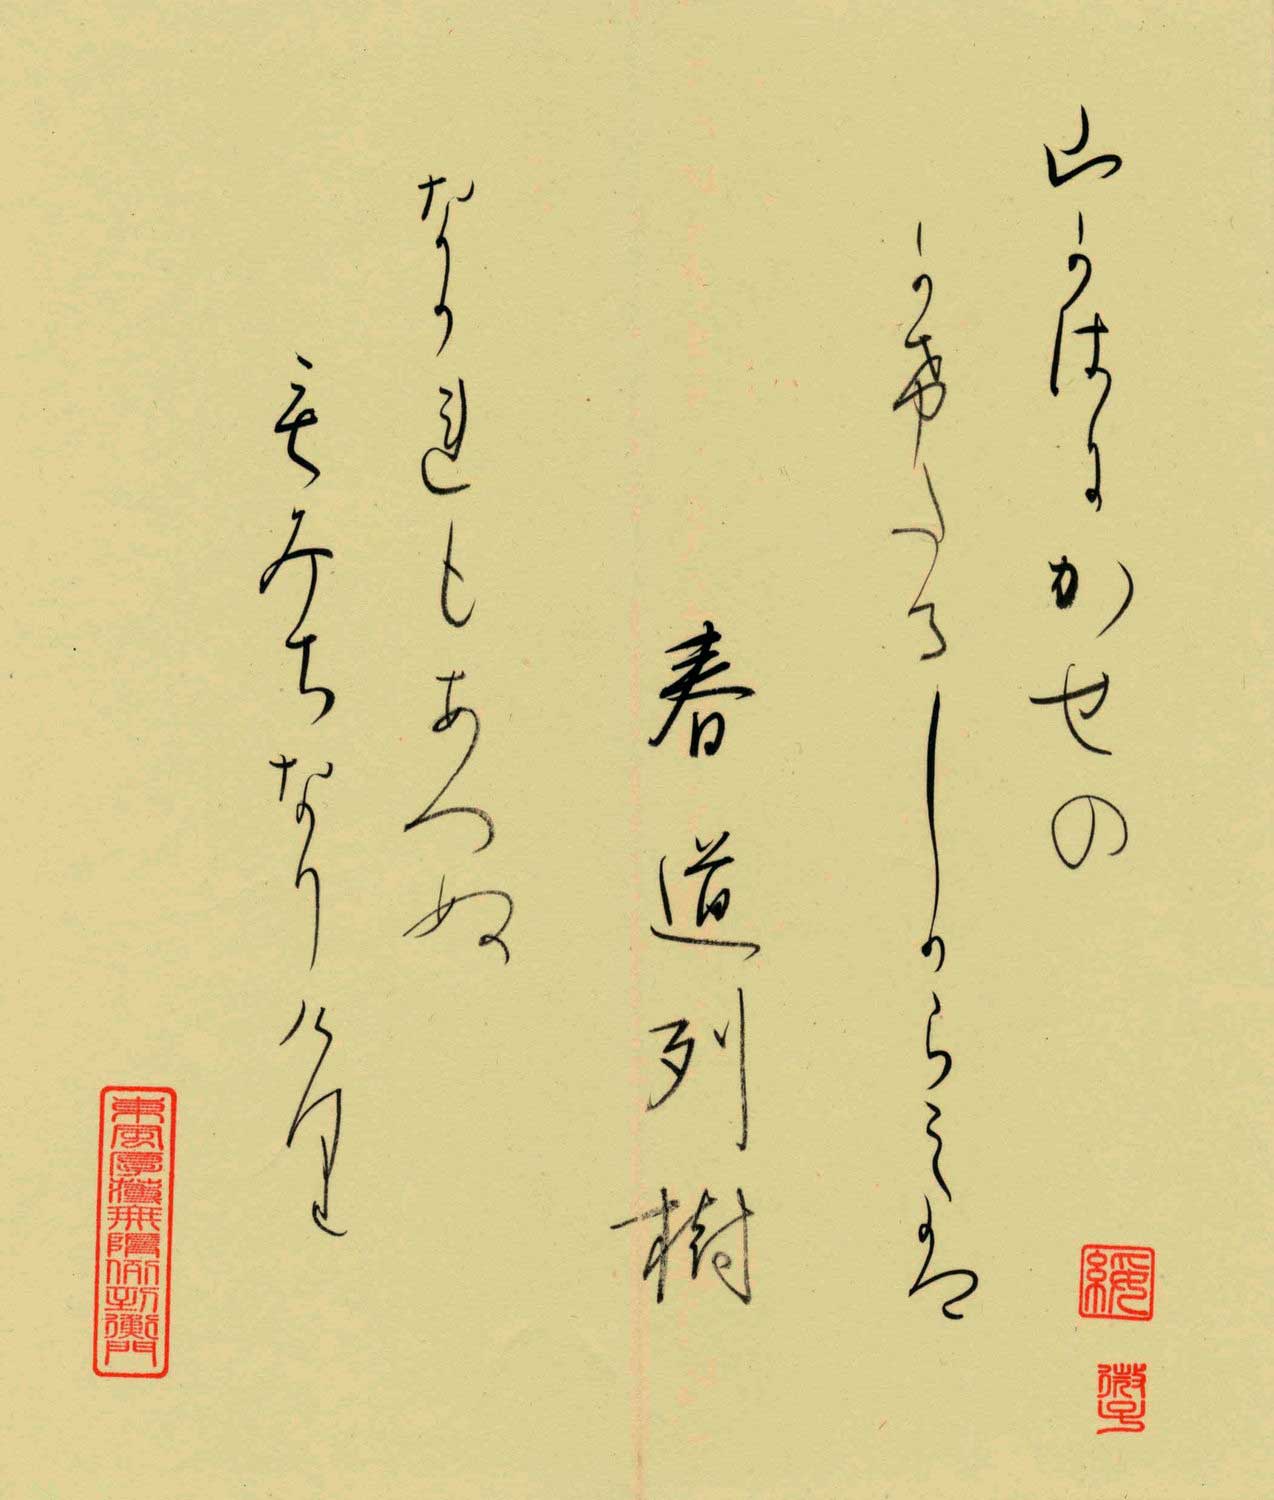 山かはにかせの
かけたるしからみは
春道列樹
なかれもあへぬ
もみちなりけり
綏